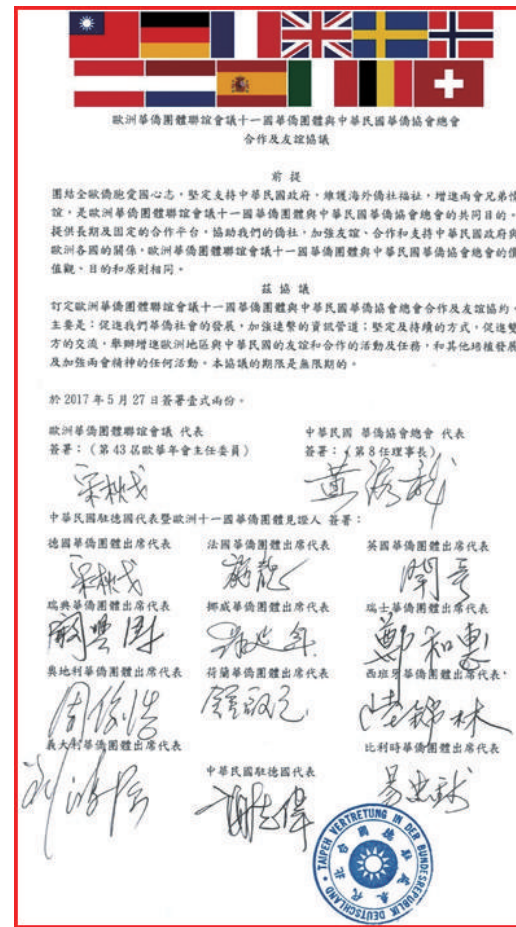 歐洲華僑團體聯誼會議十一國華僑團體與中華民國華僑協會總會
合作及友誼協議
前提
團結全歐僑胞愛國心志，堅定支持中華民國政府，維護海外僑社福祉，增進兩會兄弟情
誼，是歐洲華僑團體聯誼會議十一國華僑團體與中華民國華僑協會總會的共同目的。
提供長期及固定的合作平台，協助我們的僑社，加強友誼、合作和支持中華民國政府與
歐洲各國的關係。歐洲華僑團體聯誼會議十一國華僑團體與中華民國華僑協會總會的價
值觀、目的和原則相同。
茲協議
訂定歐洲華僑團體聯誼會議十一國華僑團體與中華民國華僑協會總會合作及友誼協約。
主要是：促進我們華僑社會的發展，加強連繫的資訊管道；堅定及持續的方式，促進雙
方的交流，舉辦增進歐洲地區與中華民國的友誼和合作的活動及任務，和其他培植發展
及加強兩會精神的任何活動。本協議的期限是無限期的。
於 2017 年 5 月 27 日簽署壹式兩份。
歐洲華僑團體聯誼會議 代表 中華民國 華僑協會總會 代表
簽署：（第 43 屆歐華年會主任委員） 簽署：（第 8 任理事長）
中華民國駐德國代表暨歐洲十一國華僑團體見證人 簽署：
德國華僑團體出席代表 法國華僑團體出席代表 英國華僑團體出席代表
瑞典華僑團體出席代表 挪威華僑團體出席代表 瑞士華僑團體出席代表
鄭和惠
奧地利華僑團體出席代表 荷蘭華僑團體出席代表 西班牙華僑團體出席代表
義大利華僑團體出席代表 比利時華僑團體出席代表
中華民國駐德國代表
謝志偉
TAIPEH VERTRETUNG IN DER BUNDESREPUBLIK DEUTSCHLAND